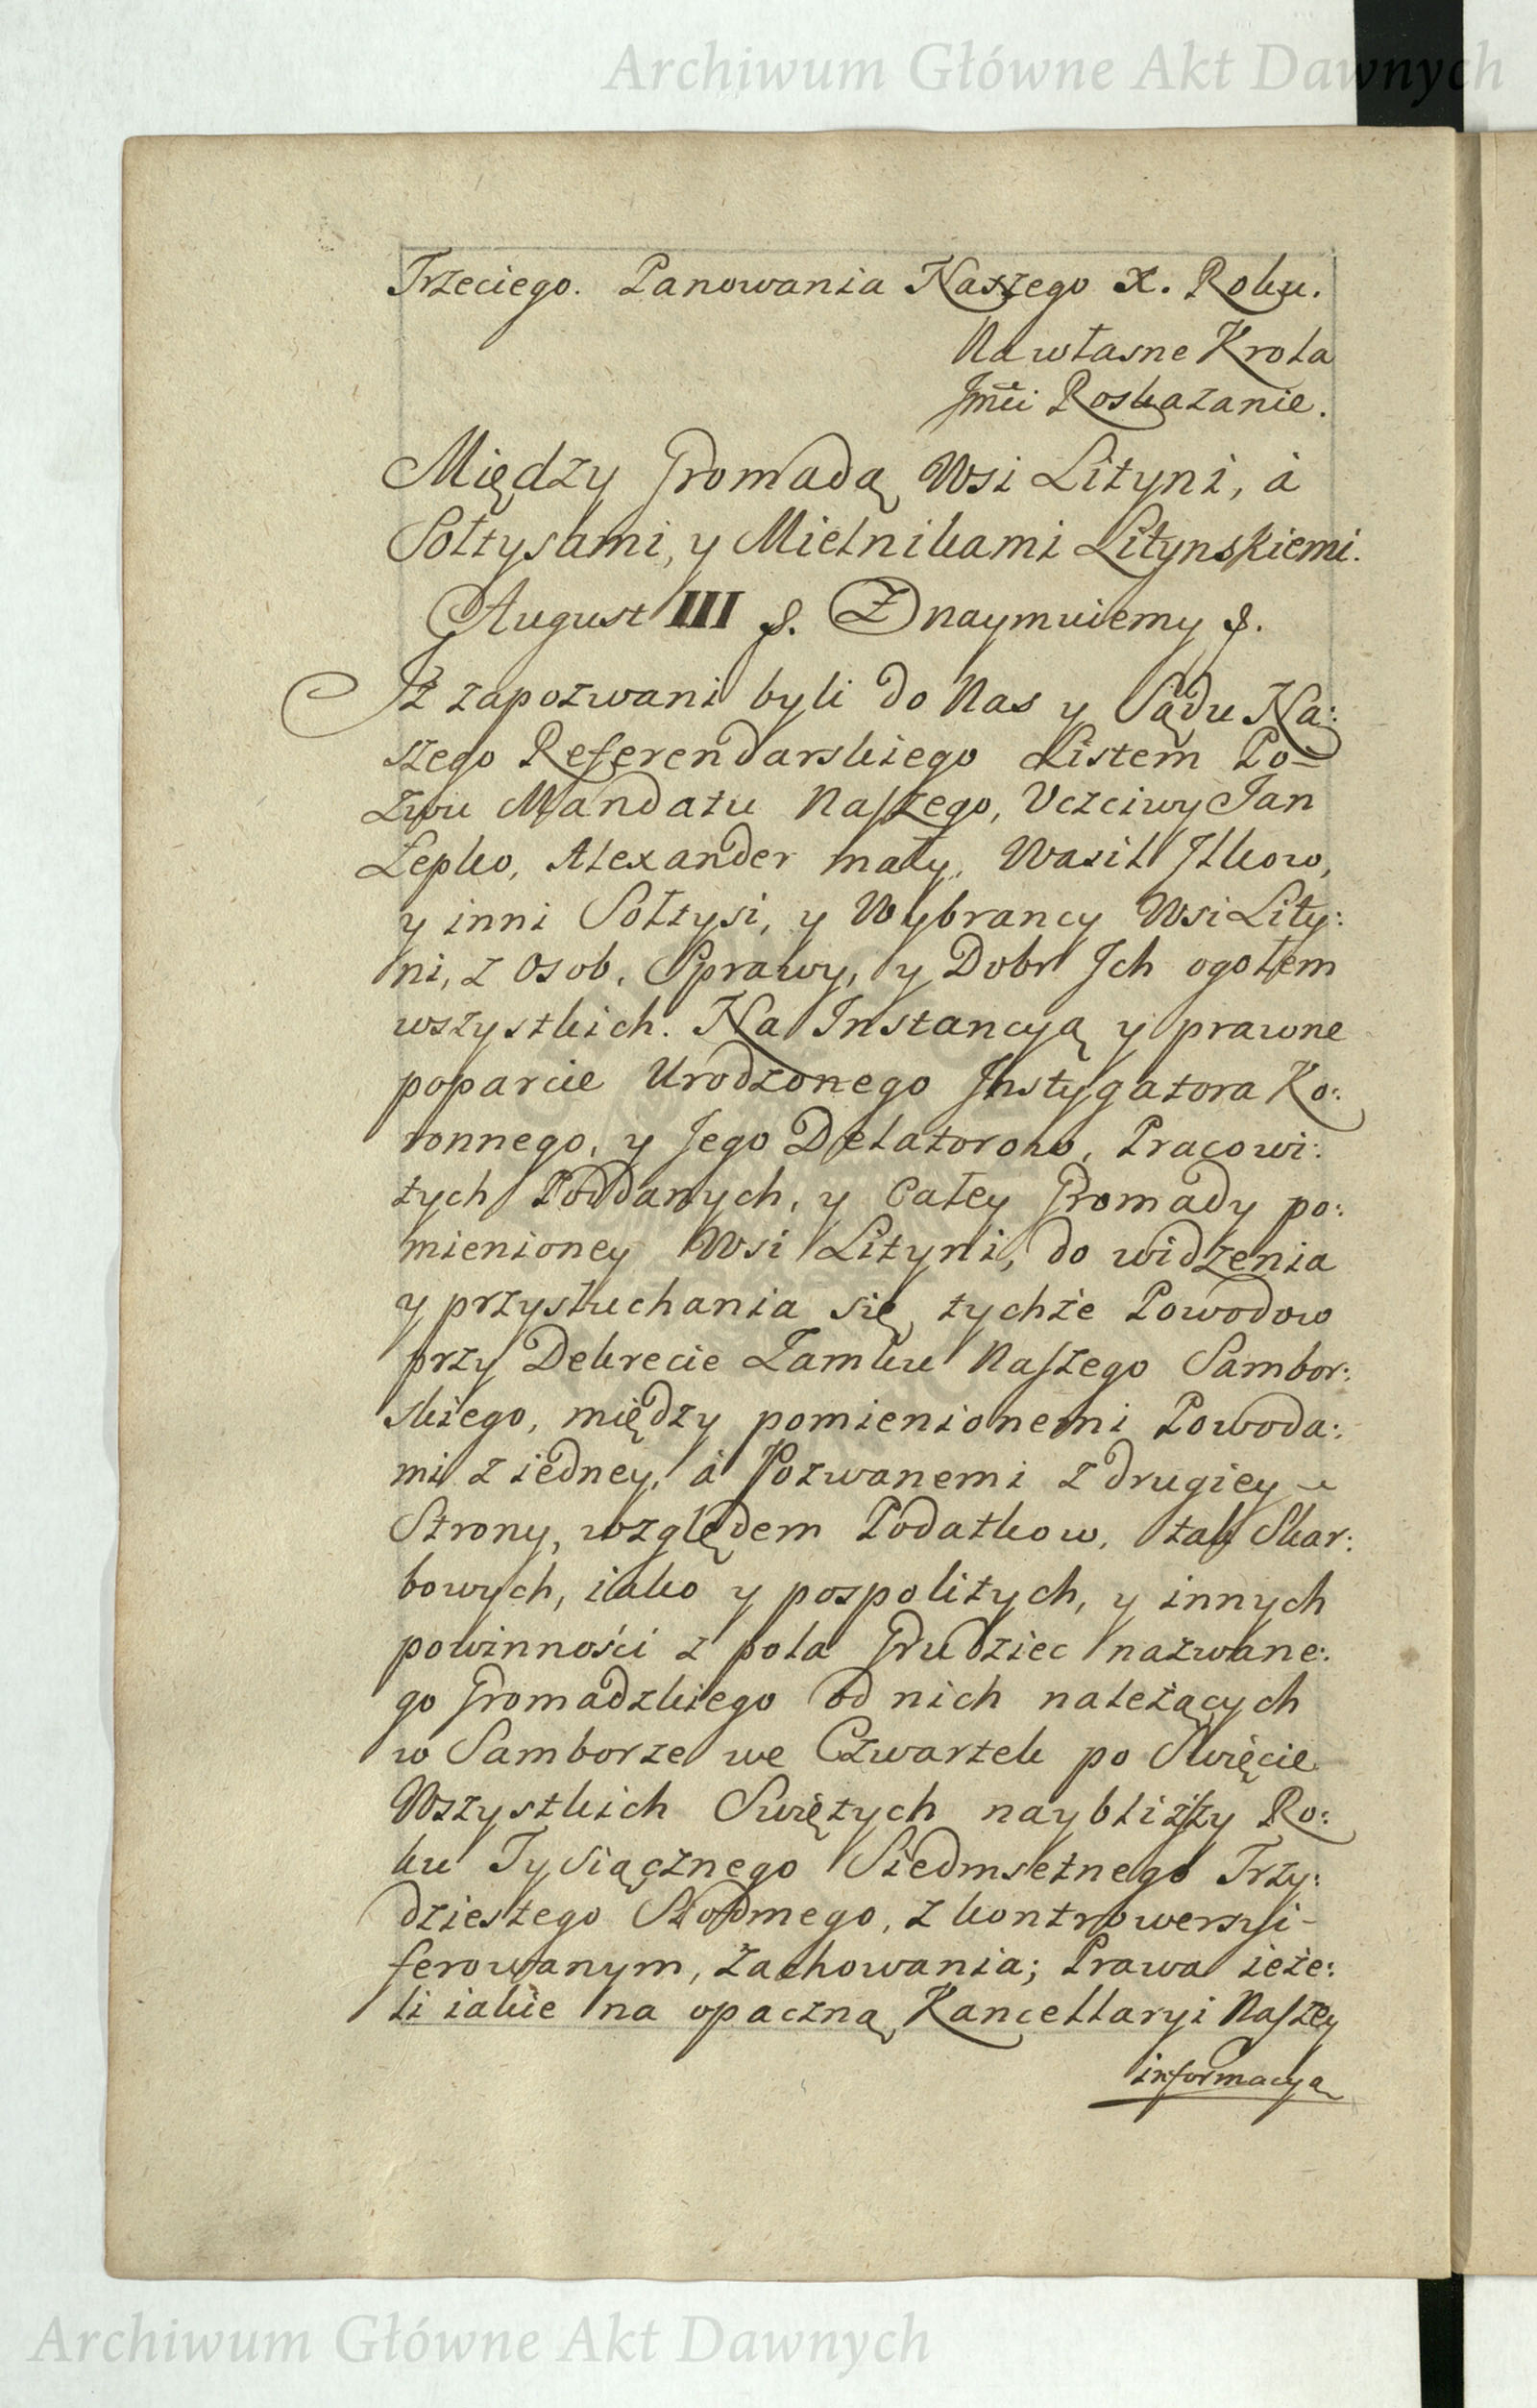 Archiwum Główne Akt Dawnych
Trzeciego. Panowania Naszego X. Roku.
Na własne Krola
Jmci Roskazanie.
Między Gromadą Wsi Lityni, à
Sołtysami, y Mielnikami Litynskiemi.
August III &. Znaymuiemy &.
Iż zapozwani byli do Nas y Sądu Na:
szego Referendarskiego Listem Po=
zwu Mandatu Naszego, Vczciwy Jan
Łepko, Alexander mały, Wasil Ilkow,
y inni Sołtysi, y Wybrancy Wsi Lity:
ni, z Osob, Sprawy, y Dobr Ich ogołem
wszystkich. Na Instancyą y prawne
poparcie Urodzonego Instygatora Ko:
ronnego, y Jego Delatorow, Pracowi:
tych Poddanych, y Całey Gromady po:
mienioney Wsi Lityni, do widzenia
y przysłuchania się tychże Powodow
przy Dekrecie Zamku Naszego Sambor:
skiego, między pomienionemi Powoda:
mi z iedney, à Pozwanemi z drugiey
Strony, względem Podatkow, tak Skar:
bowych, iako y pospolitych, y innych
powinności z pola Grudziec nazwane:
go Gromadzkiego od nich należących
w Samborze we Czwartek po Swięcie
Wszystkich Swiętych naybliższy Ro:
ku Tysiącznego Siedmsetnego Trzy:
dziestego Siodmego, z kontrowersyi
ferowanym, zachowania; Prawa ieże:
li iakie na opaczną Kancellaryi Naszey
informacyą
Archiwum Główne Akt Dawnych